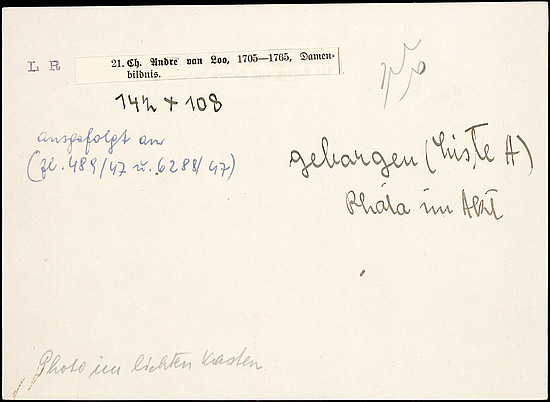 L R
21. Ch. André van Loo, 1705—1765, Damen-
bildnis.
142 × 108
ausgefolgt an
(Zl. 489/47 u. 6288/47)
geborgen (Liste A)
Photo im Akt
Photo im lichten Kasten.